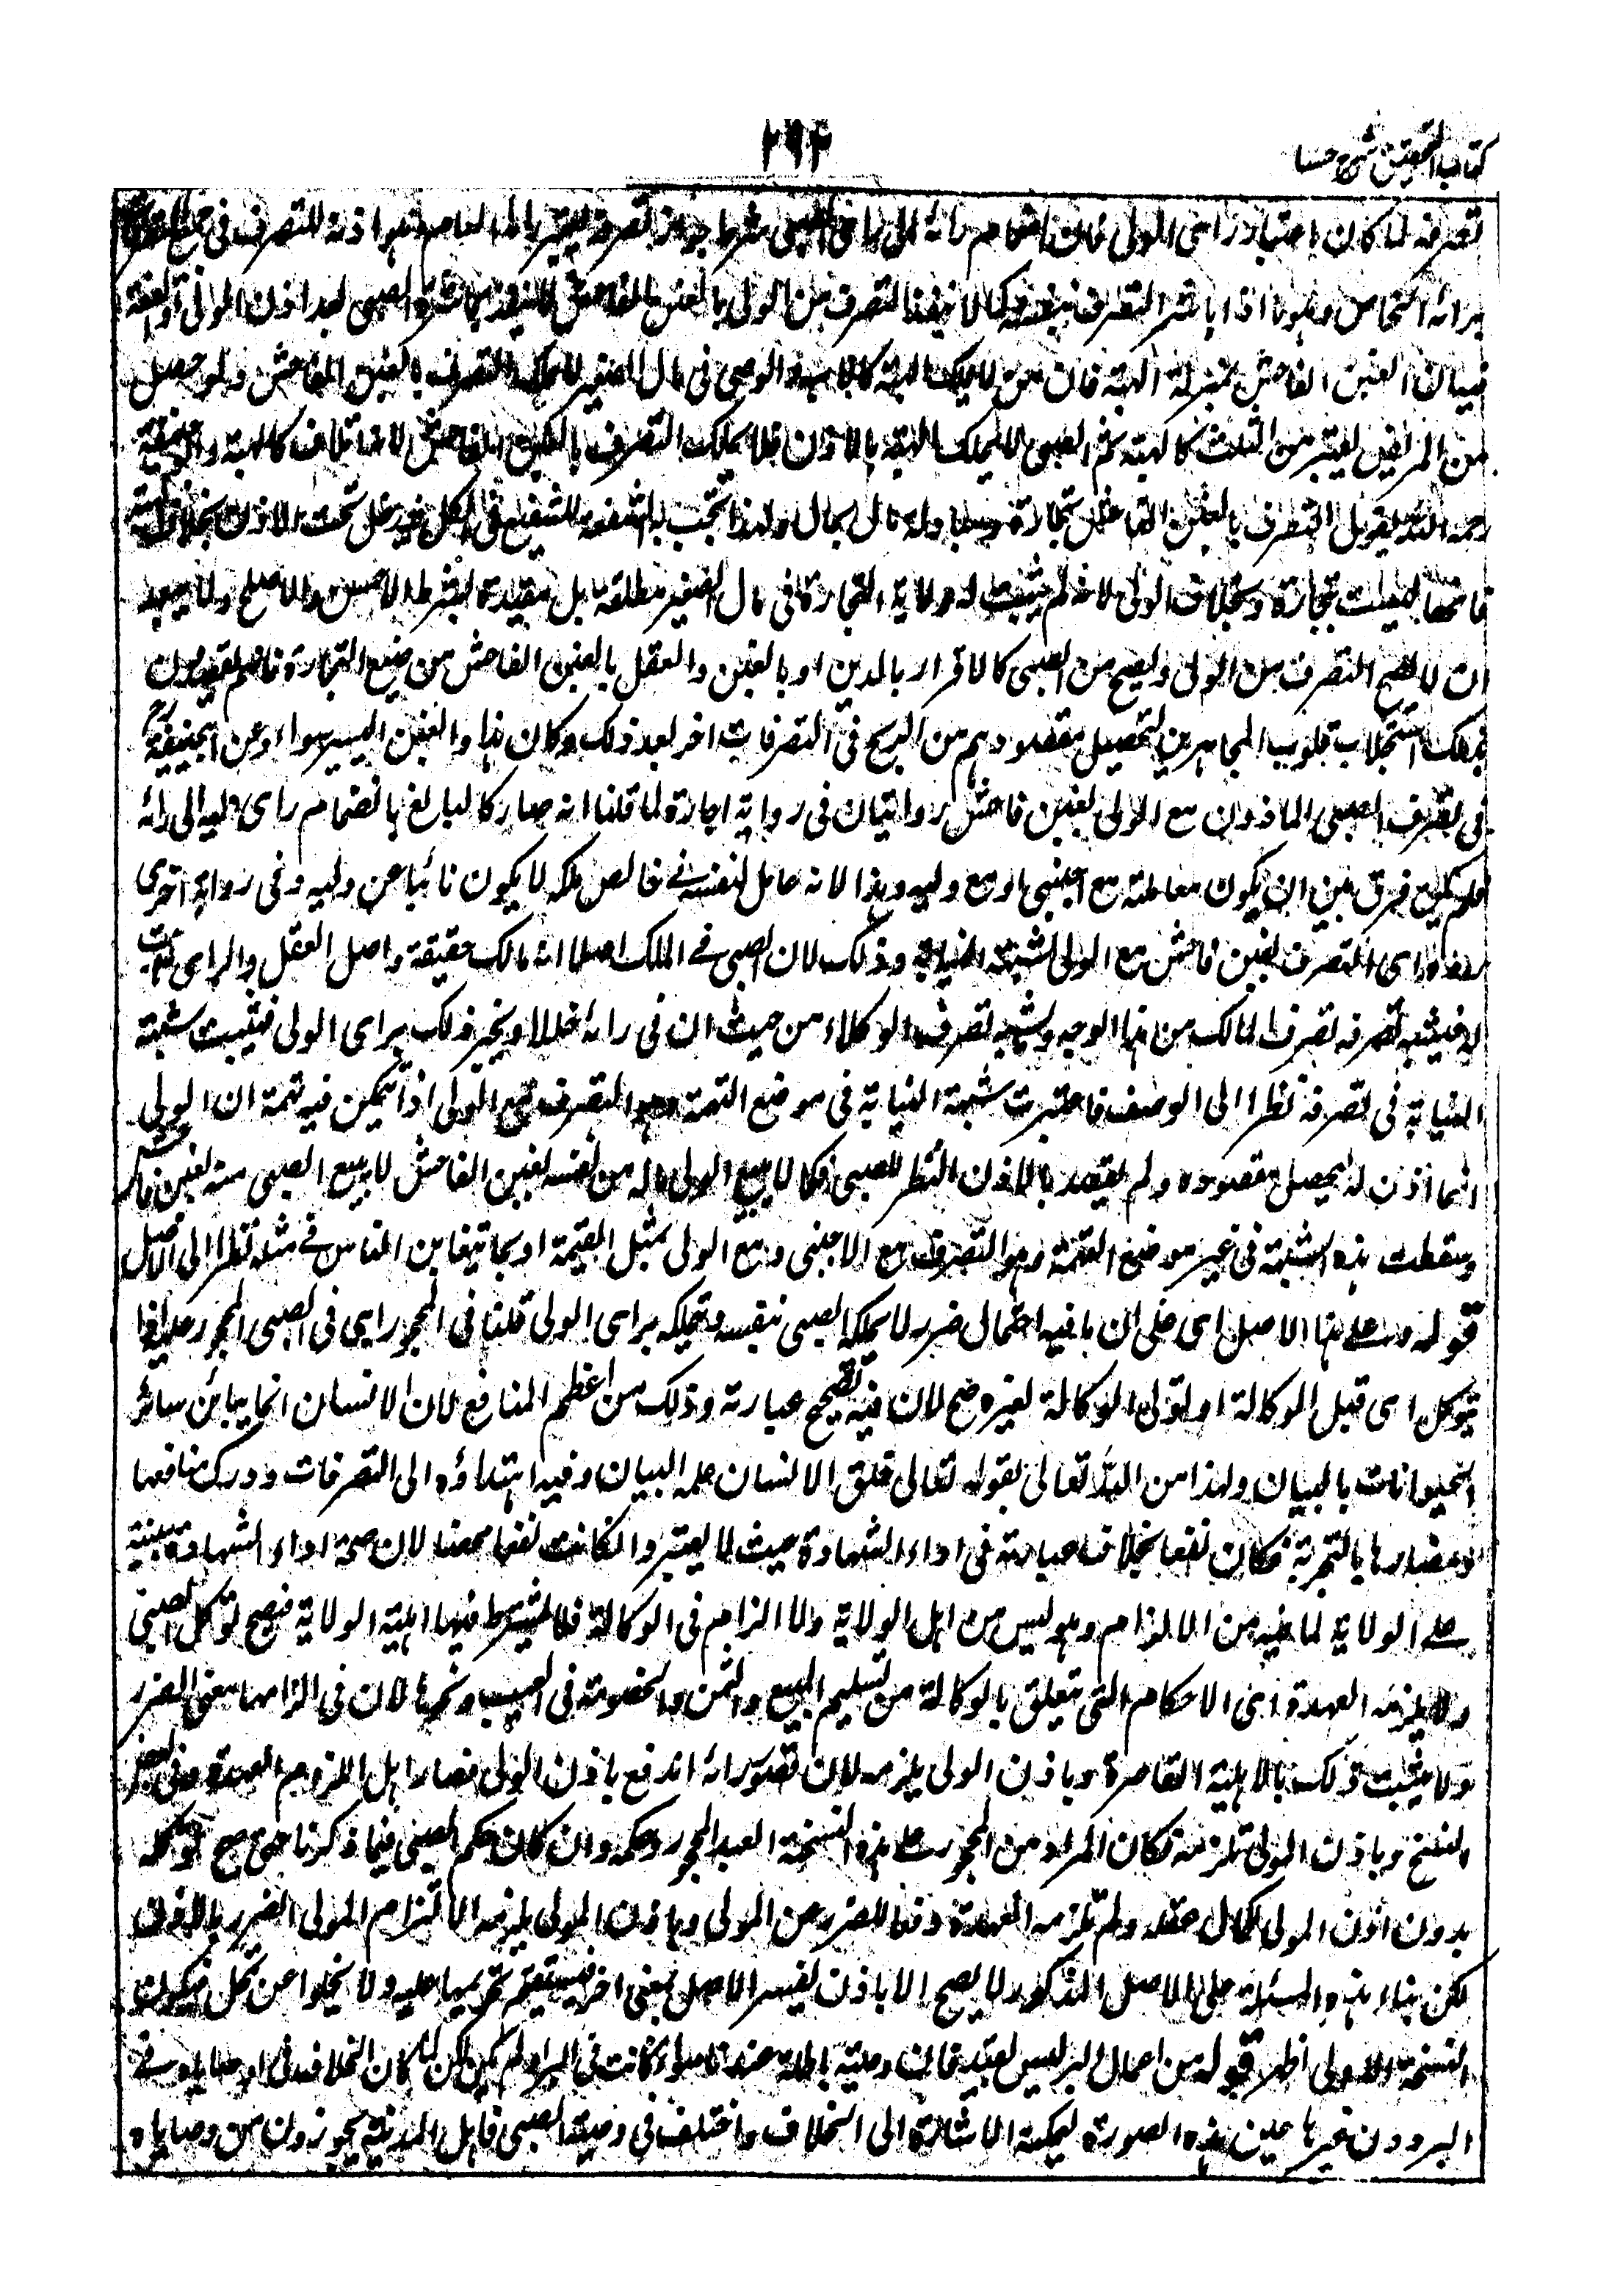 كتاب التحقيق شرح حسا
۲۹۴
تصرفه لما كان باعتبار رأى المولى كان انضمام رائه الى رأى الصبى شرط جواز تصرفه
برائه الخاص اذا باشر التصرف بنفسه فكما لا ينفذ التصرف من الولى بالغبن الفاحش لا ينفذ بمباشرة الصبى بعد اذن المولى
الغبن الفاحش بمنزلة الهبة فان من لا يملك الهبة كالاب والوصى فى مال الصغير لا يملك التصرف بالغبن الفاحش ولو حصل
من المريض يعتبر من الثلث كالهبة ثم الصبى لا يملك الهبة بالاذن فلا يملك التصرف بالغبن الفاحش لانه اتلاف كالهبة
رحمه الله يقول التصرف بالغبن الفاحش تجارة مال بمال ولهذا تجب به الشفعة للشفيع فى الكل فيدخل تحت الاذن بخلاف
فانها ليست تجارة وبخلاف الولى لانه لم يثبت له ولاية التجارة فى مال الصغير مطلقه بل مقيدة بشرط الاحسن والاصلح
ان لا يصح التصرف من الولى ويصح من الصبى كالاقرار بالدين او بالغبن والعقل بالغبن الفاحش من صنيع التجارة فانهم يقصدون
بذلك استجلاب قلوب المجاهرين لتحصيل مقصودهم من الربح فى التصرفات اخر بعد ذلك وكان هذا والغبن اليسير سواء وعن ابيحنيفة
فى تصرف الصبى الماذون مع الولى بغبن فاحش روايتان فى رواية اجازة لما قلنا انه صار كالبالغ بانضمام راى وليه الى رائه
فلم يكن فرق بين ان يكون معاملته مع اجنبى او مع وليه وهذا لانه عامل لنفسه فى خالص ملكه لا يكون نائبا عن وليه وفى رواية اخرى
رده اى التصرف بغبن فاحش مع الولى لشبهة النيابة وذلك لان الصبى فى الملك اصلا انه مالك حقيقة واصل العقل والراى ثابت
له فيشبه تصرفه تصرف المالك من هذا الوجه ويشبه تصرف الوكلاء من حيث ان فى رائه خللا ويجبر ذلك براى الولى فيثبت شبهة
النيابة فى تصرفه نظرا الى الوصف فاعتبرت شبهة النيابة فى موضع التهمة وهو التصرف مع المولى اذ يتمكن فيه تهمة ان الولى
انما اذن له ليحصل مقصوده ولم يقصد بالاذن النظر للصبى فكما لا يبيع الولى ماله من نفسه بغبن الفاحش لا يبيع الصبى منه بغبن فاحش
وسقطت هذه الشبهة فى غير موضع التهمة وهو التصرف مع الاجنبى ومع الولى بمثل القيمة او بما يتغابن الناس فى مثله نظرا الى الاصل
قوله وعلى هذا الاصل اى على ان ما فيه احتمال ضرر لا يملكه الصبى بنفسه ويملكه براى الولى قلنا فى المحجور اى فى الصبى المحجور عليه اذا
توكل اى قبل الوكالة او تولى الوكالة لغيره صح لان فيه تصحيح عبارته وذلك من اعظم المنافع لان الانسان انما يباين سائر
الحيوانات بالبيان ولهذا من الله تعالى بقوله تعالى خلق الانسان علمه البيان وفيه اهتداؤه الى التصرفات ودرك منافعها
ومضارها بالتجربة فكان نفعا بخلاف عبارته فى اداء الشهادة حيث لا يعتبر وان كانت نفعا محضا لان صحة اداء الشهادة مبنية
على الولاية لما فيه من الالزام وهو ليس من اهل الولاية ولا الزام فى الوكالة فلا يشترط فيها اهلية الولاية فيصح توكل الصبى
ولا يلزمه العهدة اى الاحكام التى تتعلق بالوكالة من تسليم المبيع والثمن والخصومة فى العيب ونحوها لان فى الزامها معنى الضرر
ولا يثبت ذلك بالاهلية القاصرة وباذن الولى يلزمه لان قصور رائه اندفع باذن الولى فصار اهل للزوم العهدة وفى بعض
النسخ وباذن المولى تلزمه فكان المراد من المحجور على هذه النسخة العبد المحجور وحكمه وان كان حكم الصبى فيما ذكرنا حتى صح توكله
بدون اذن المولى لكمال عقله ولم تلزمه العهدة دفعا للضرر عن المولى وباذن المولى يلزمه لالتزام المولى الضرر بالاذن
لكن بناء هذه المسئلة على الاصل المذكور لا يصح الا باذن يفسر الاصل بمعنى اخر فيستقيم تخريجها عليه ولا يخلوا عن تمحل فيكون
النسخة الاولى اظهر قوله من اعمال البر ليس بقيد فان وصيته باطلة عندنا سواء كانت فى البر او لم يكن لكن لما كان الخلاف فى وصايا
البر دون غيرها عين هذه الصورة ليمكنه الاشارة الى الخلاف واختلف فى وصية الصبى فاهل المدينة يجوزون من وصاياه